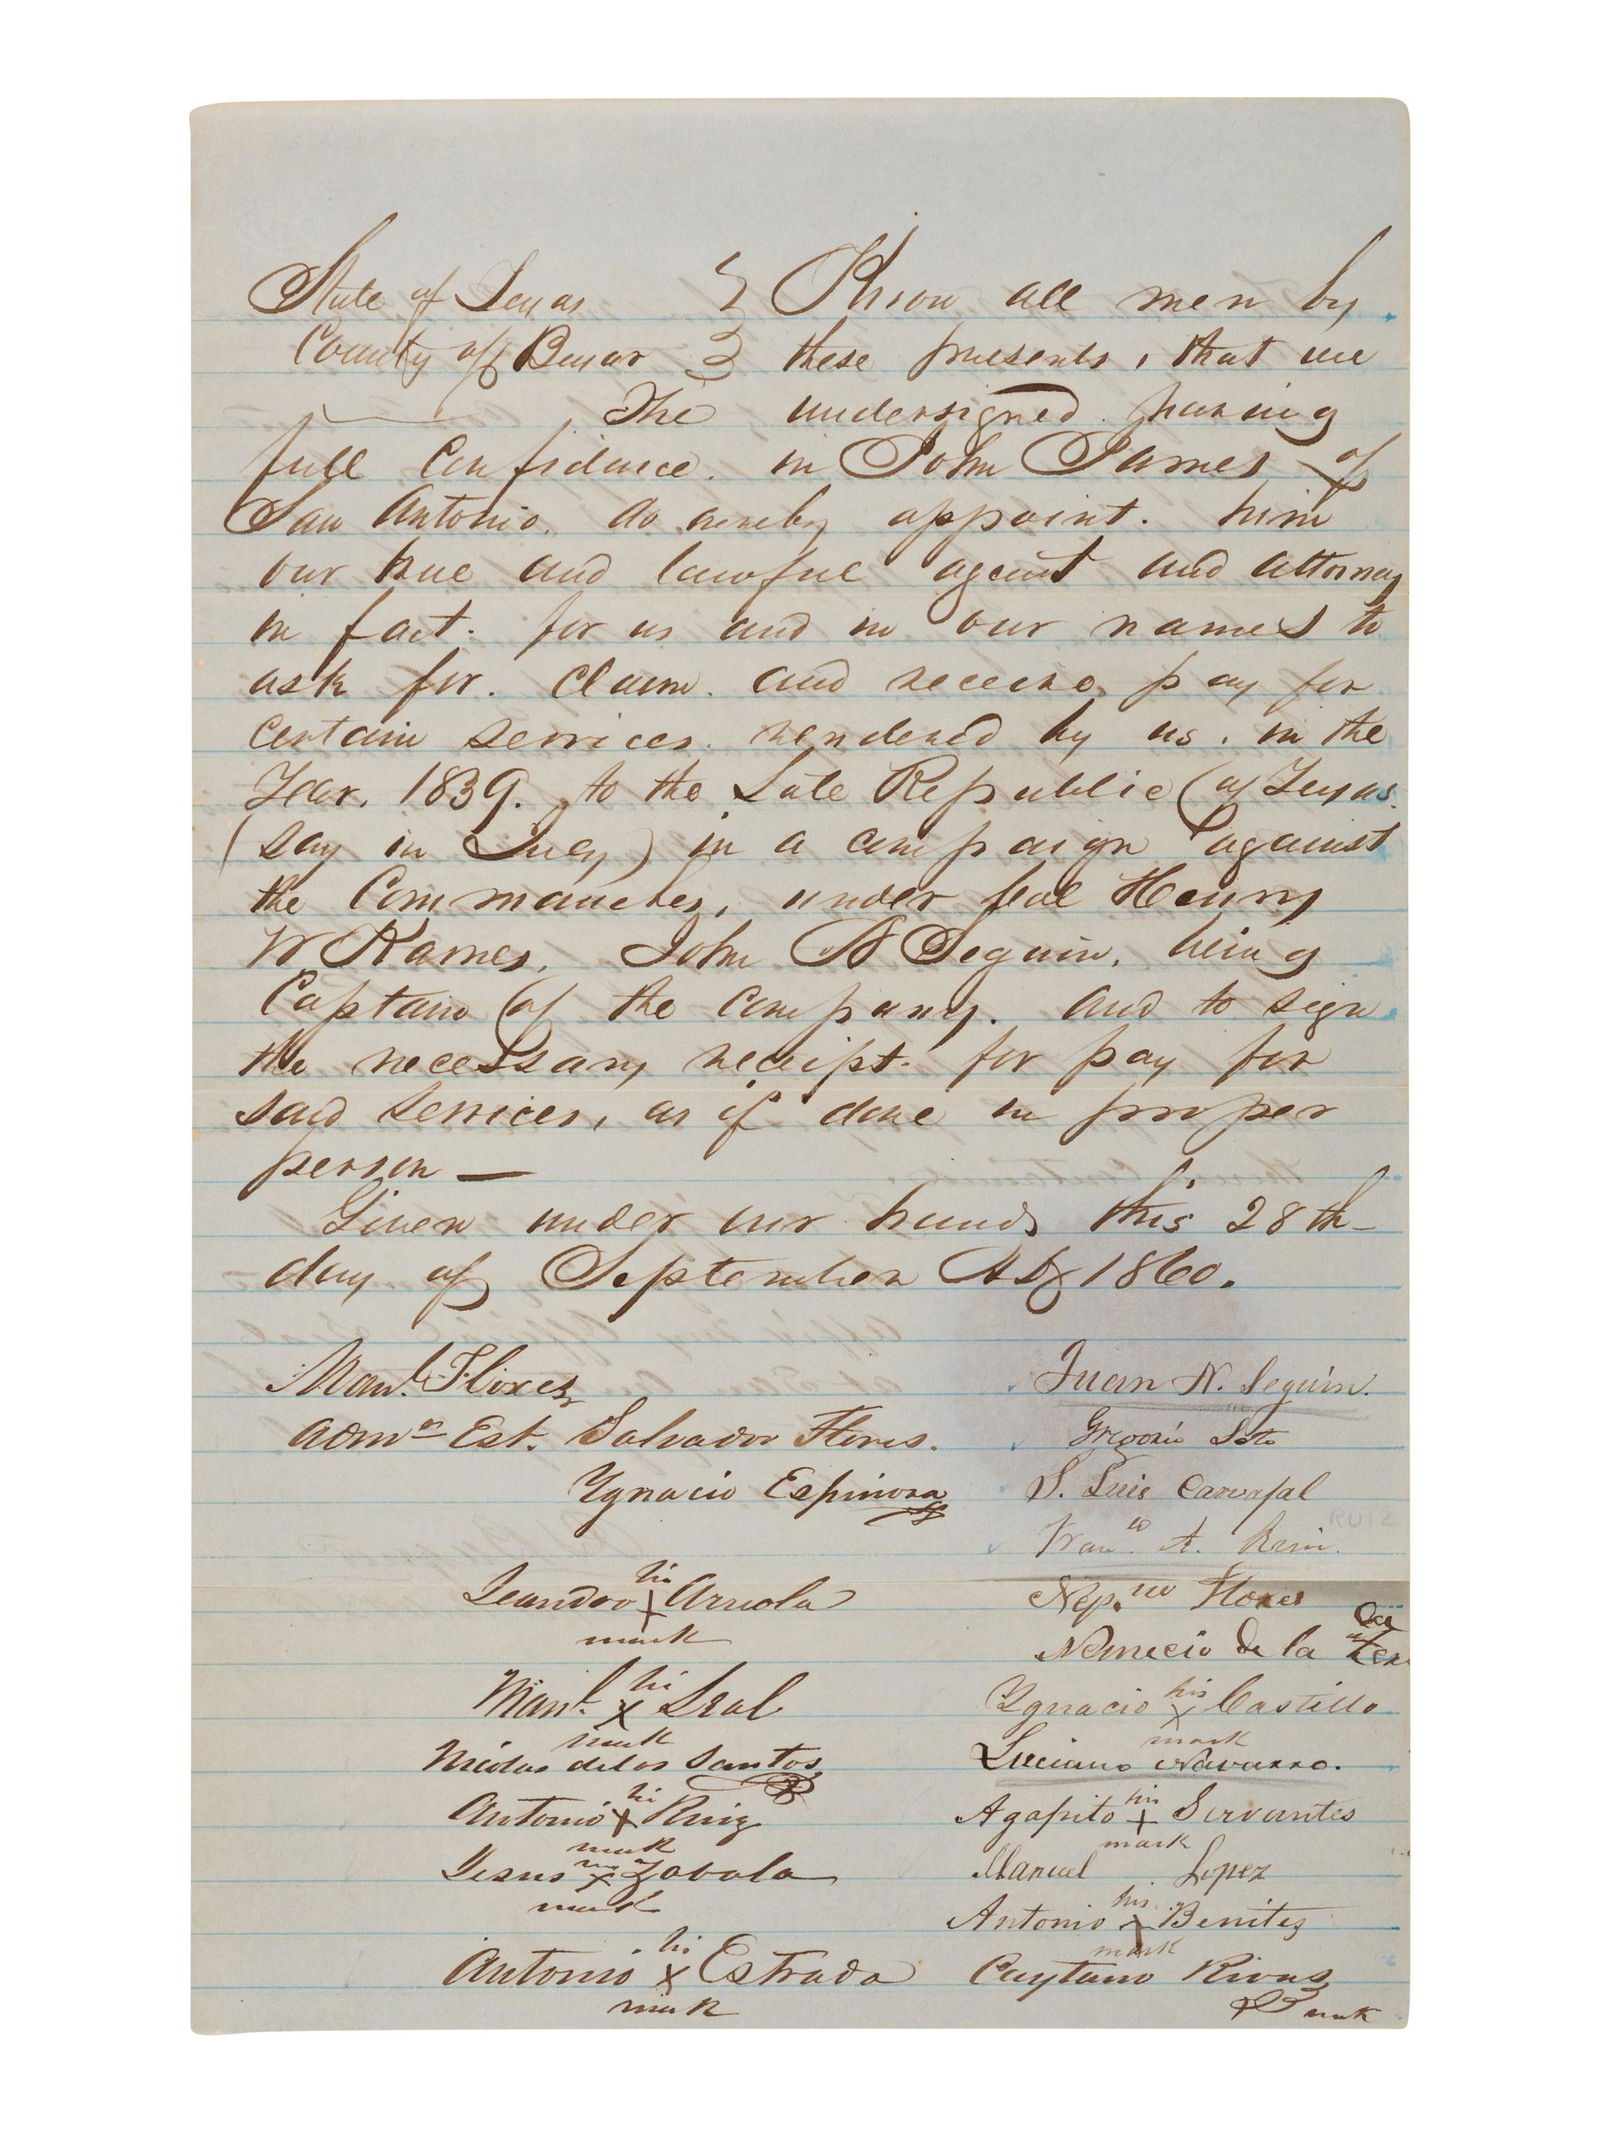 State of Texas } Know all men by
County of Bexar } these presents, that we
The undersigned having
full confidence. in John James of
San Antonio. do hereby appoint. him
our true and lawful agent and attorney
in fact. for us and in our names to
ask for. claim. and receive, pay for
certain services. rendered by us. in the
Year. 1839. to the Late Republic of Texas.
(say in July) in a campaign against
the Commanches, under Col Henry
W Karnes. John N Seguin. being
Captain of the company. and to sign
the necessary receipt. for pay for
said services, as if done in proper
person —
Given under our hands this 28th
day of September AD 1860.
Manl. Flores
Juan N. Seguin.
Admor Est. Salvador Flores.
Gregorio Soto
Ygnacio Espinosa
S. Luis Carvajal
RUIZ
Franco A. Ruiz.
Leandro his x Arreola
mark
Nep.no Flores
Nemecio de la
Manl. his x Leal
mark
Ygnacio his x Castillo
mark
Nicolas de los Santos
Luciano Navarro.
Antonio his x Ruiz
mark
Agapito his x Servantes
mark
Jesus x Zavala
mark
Manuel Lopez
Antonio his x Benites
mark
Antonio his x Estrada
mark
Caytano Rivas
mark